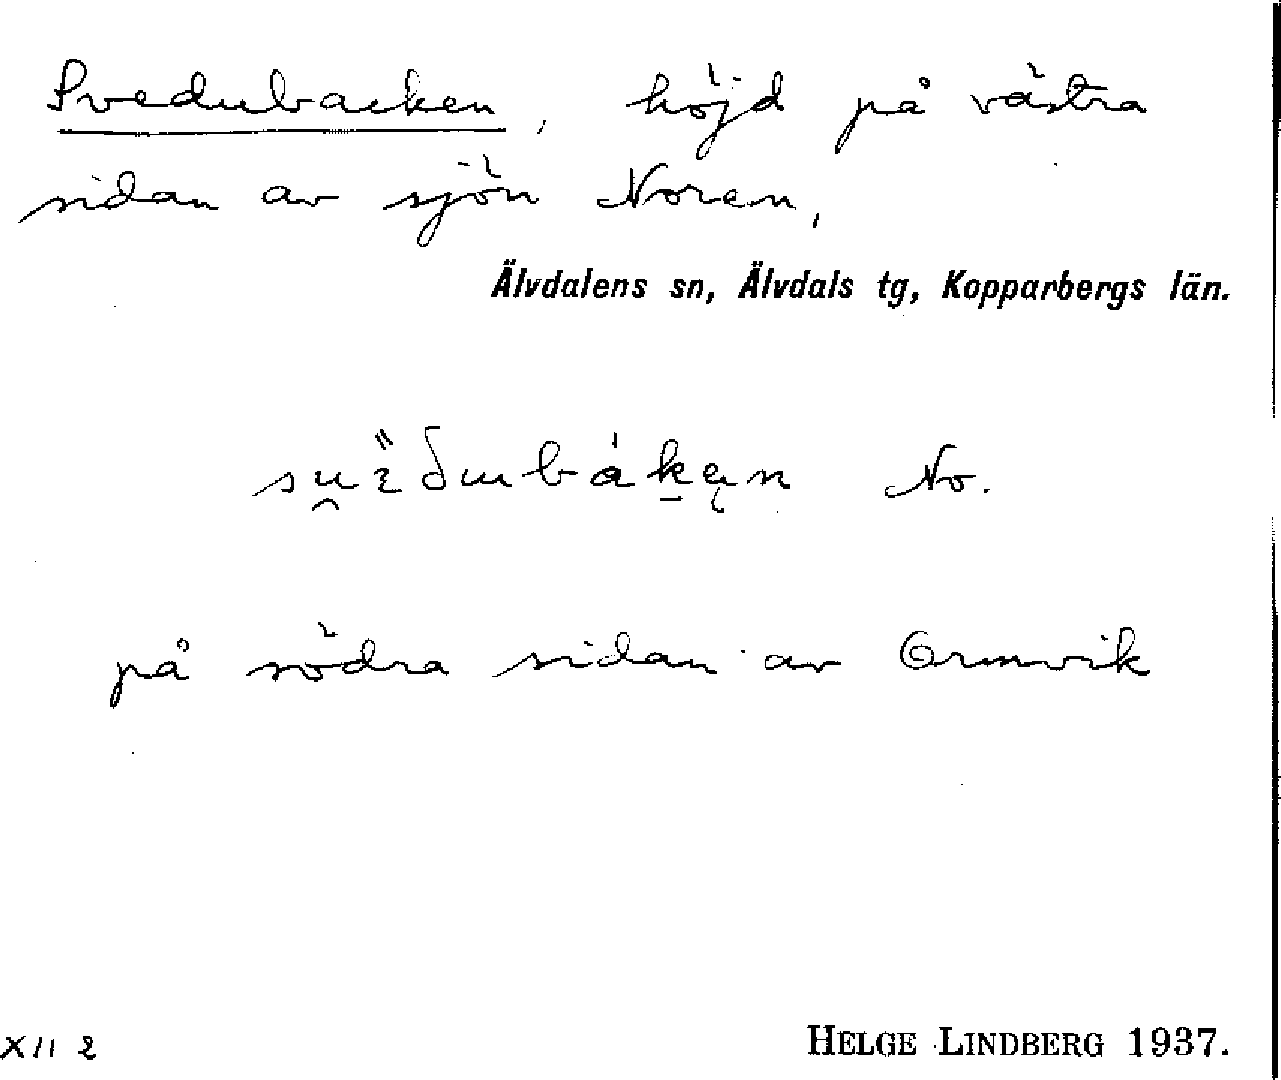 Svedubacken, höjd på västra
sidan av sjön Noren,
Älvdalens sn, Älvdals tg, Kopparbergs län.
No.
på södra sidan av Ormvik
XII 2
HELGE LINDBERG 1937.